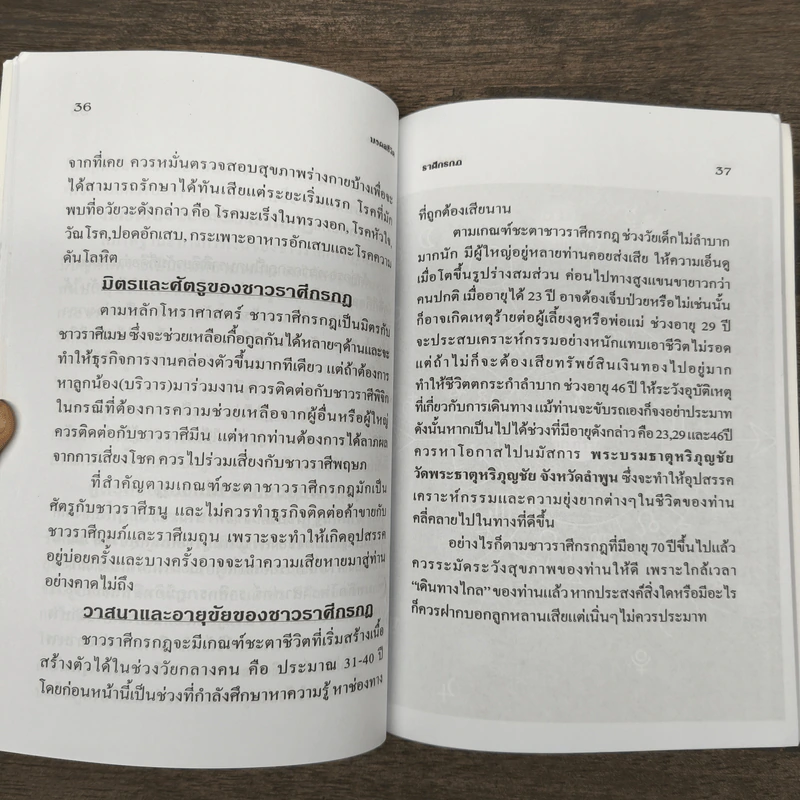 36
จากที่เคย ควรหมั่นตรวจสอบสุขภาพร่างกายบ้างเพื่อจะ
ได้สามารถรักษาได้ทันเสียแต่ระยะเริ่มแรก โรคที่มัก
พบที่อวัยวะดังกล่าว คือ โรคมะเร็งในทรวงอก, โรคหัวใจ,
วัณโรค,ปอดอักเสบ, กระเพาะอาหารอักเสบและโรคความ
ดันโลหิต
มิตรและศัตรูของชาวราศีกรกฎ
ตามหลักโหราศาสตร์ ชาวราศีกรกฎเป็นมิตรกับ
ชาวราศีเมษ ซึ่งจะช่วยเหลือเกื้อกูลกันได้หลายๆด้านและจะ
ทำให้ธุรกิจการงานคล่องตัวขึ้นมากทีเดียว แต่ถ้าต้องการ
หาลูกน้อง(บริวาร)มาร่วมงาน ควรติดต่อกับชาวราศีพิจิก
ในกรณีที่ต้องการความช่วยเหลือจากผู้อื่นหรือผู้ใหญ่
ควรติดต่อกับชาวราศีมีน แต่หากท่านต้องการได้ลาภผล
จากการเสี่ยงโชค ควรไปร่วมเสี่ยงกับชาวราศีพฤษภ
ที่สำคัญตามเกณฑ์ชะตาชาวราศีกรกฎมักเป็น
ศัตรูกับชาวราศีธนู และไม่ควรทำธุรกิจติดต่อค้าขายกับ
ชาวราศีกุมภ์และราศีเมถุน เพราะจะทำให้เกิดอุปสรรค
อยู่บ่อยครั้งและบางครั้งอาจจะนำความเสียหายมาสู่ท่าน
อย่างคาดไม่ถึง
วาสนาและอายุขัยของชาวราศีกรกฎ
ชาวราศีกรกฎจะมีเกณฑ์ชะตาชีวิตที่เริ่มสร้างเนื้อ
สร้างตัวได้ในช่วงวัยกลางคน คือ ประมาณ 31-40 ปี
โดยก่อนหน้านี้เป็นช่วงที่กำลังศึกษาหาความรู้ หาช่องทาง
ราศีกรกฎ
37
ที่ถูกต้องเสียนาน
ตามเกณฑ์ชะตาชาวราศีกรกฎ ช่วงวัยเด็กไม่ลำบาก
มากนัก มีผู้ใหญ่อยู่หลายท่านคอยส่งเสีย ให้ความเอ็นดู
เมื่อโตขึ้นรูปร่างสมส่วน ค่อนไปทางสูงแขนขายาวกว่า
คนปกติ เมื่ออายุได้ 23 ปี อาจต้องเจ็บป่วยหรือไม่เช่นนั้น
ก็อาจเกิดเหตุร้ายต่อผู้เลี้ยงดูหรือพ่อแม่ ช่วงอายุ 29 ปี
จะประสบเคราะห์กรรมอย่างหนักแทบเอาชีวิตไม่รอด
แต่ถ้าไม่ก็จะต้องเสียทรัพย์สินเงินทองไปอยู่มาก
ทำให้ชีวิตตกระกำลำบาก ช่วงอายุ 46 ปี ให้ระวังอุบัติเหตุ
ที่เกี่ยวกับการเดินทาง แม้ท่านจะขับรถเองก็จงอย่าประมาท
ดังนั้นหากเป็นไปได้ช่วงที่มีอายุดังกล่าว คือ 23,29 และ46ปี
ควรหาโอกาสไปนมัสการ พระบรมธาตุหริภุญชัย
วัดพระธาตุหริภุญชัย จังหวัดลำพูน ซึ่งจะทำให้อุปสรรค
เคราะห์กรรมและความยุ่งยากต่างๆในชีวิตของท่าน
คลี่คลายไปในทางที่ดีขึ้น
อย่างไรก็ตามชาวราศีกรกฎที่มีอายุ 70 ปีขึ้นไปแล้ว
ควรระมัดระวังสุขภาพของท่านให้ดี เพราะใกล้เวลา
“เดินทางไกล” ของท่านแล้ว หากประสงค์สิ่งใดหรือมีอะไร
ก็ควรฝากบอกลูกหลานเสียแต่เนิ่นๆ ไม่ควรประมาท